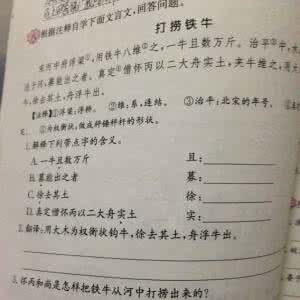 根据注释自学下面文言文,回答问题。
打捞铁牛
宋河中府浮梁①,用铁牛八维②之,一牛且数万斤。治平③中,水
募能出之者。真定④僧怀丙以二大舟实土,夹牛维之,用大
牛,徐去其土,舟浮牛出。
【注释】①浮梁:浮桥。 ②维:系,连结。 ③治平:北宋的年号。
⑤为权衡状:做成秤锤秤杆的形状。
1.解释下列带点字的含义。
A.一牛且数万斤 且:
B.募能出之者 募:
C.徐去其土 徐:
D.真定僧怀丙以二大舟实土 实:
2.翻译:用大木为权衡状钩牛,徐去其土,舟浮牛出。
3.怀丙和尚是怎样把铁牛从河中打捞出来的?